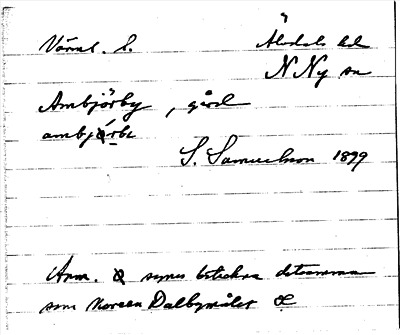 Värml. l. Älvdals hd
N Ny sn
Ambjörby, gård
S. Samuelsson 1899
Anm. synes beteckna detsamma
som Noreen Dalbymålet